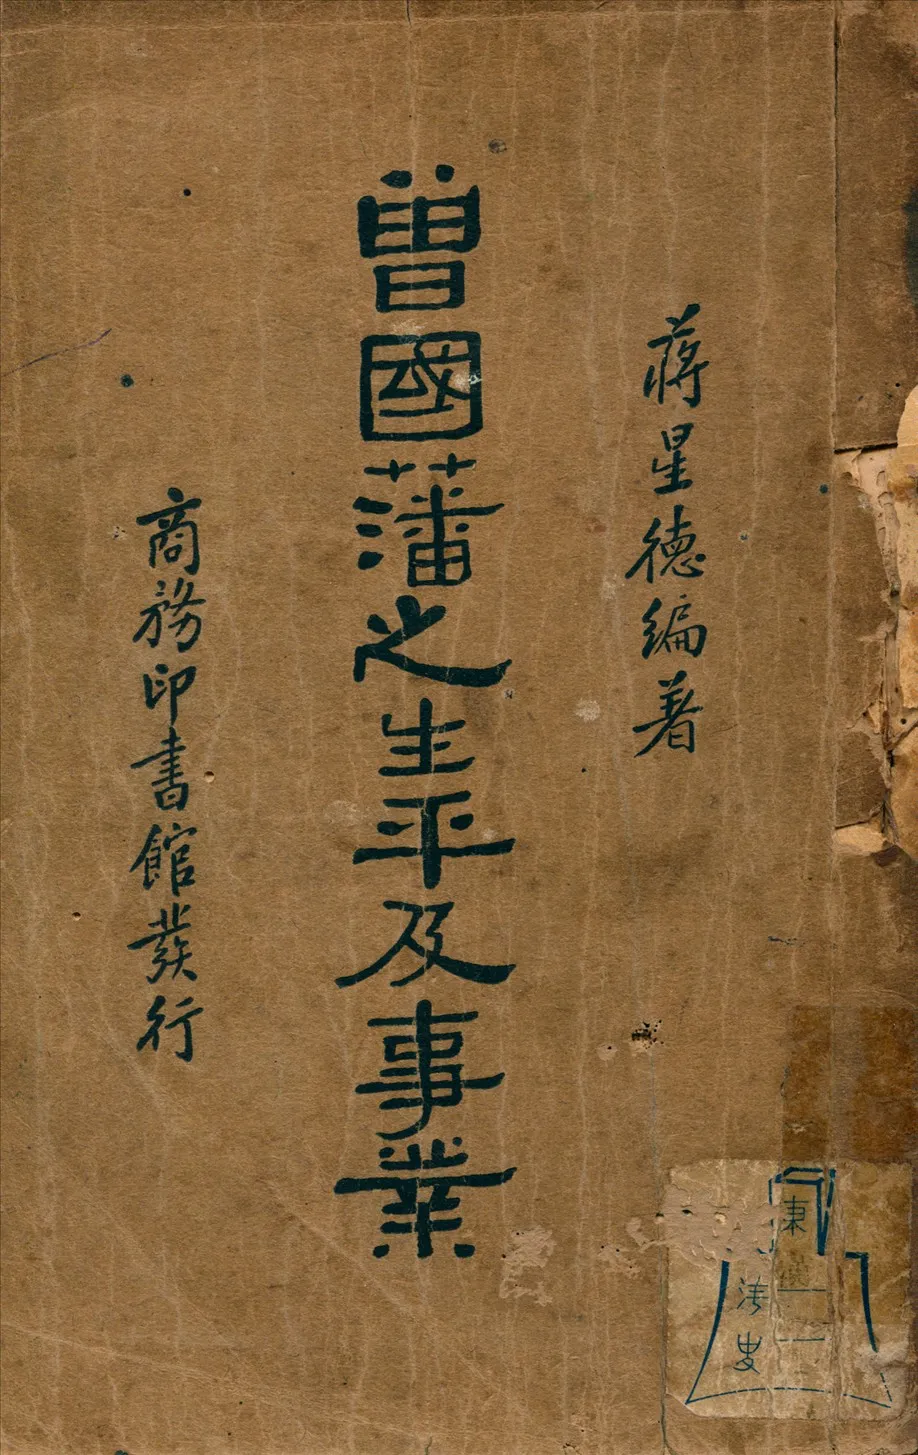 蔣星德編著
曾國藩之生平及事業
商務印書館發行
東
法史